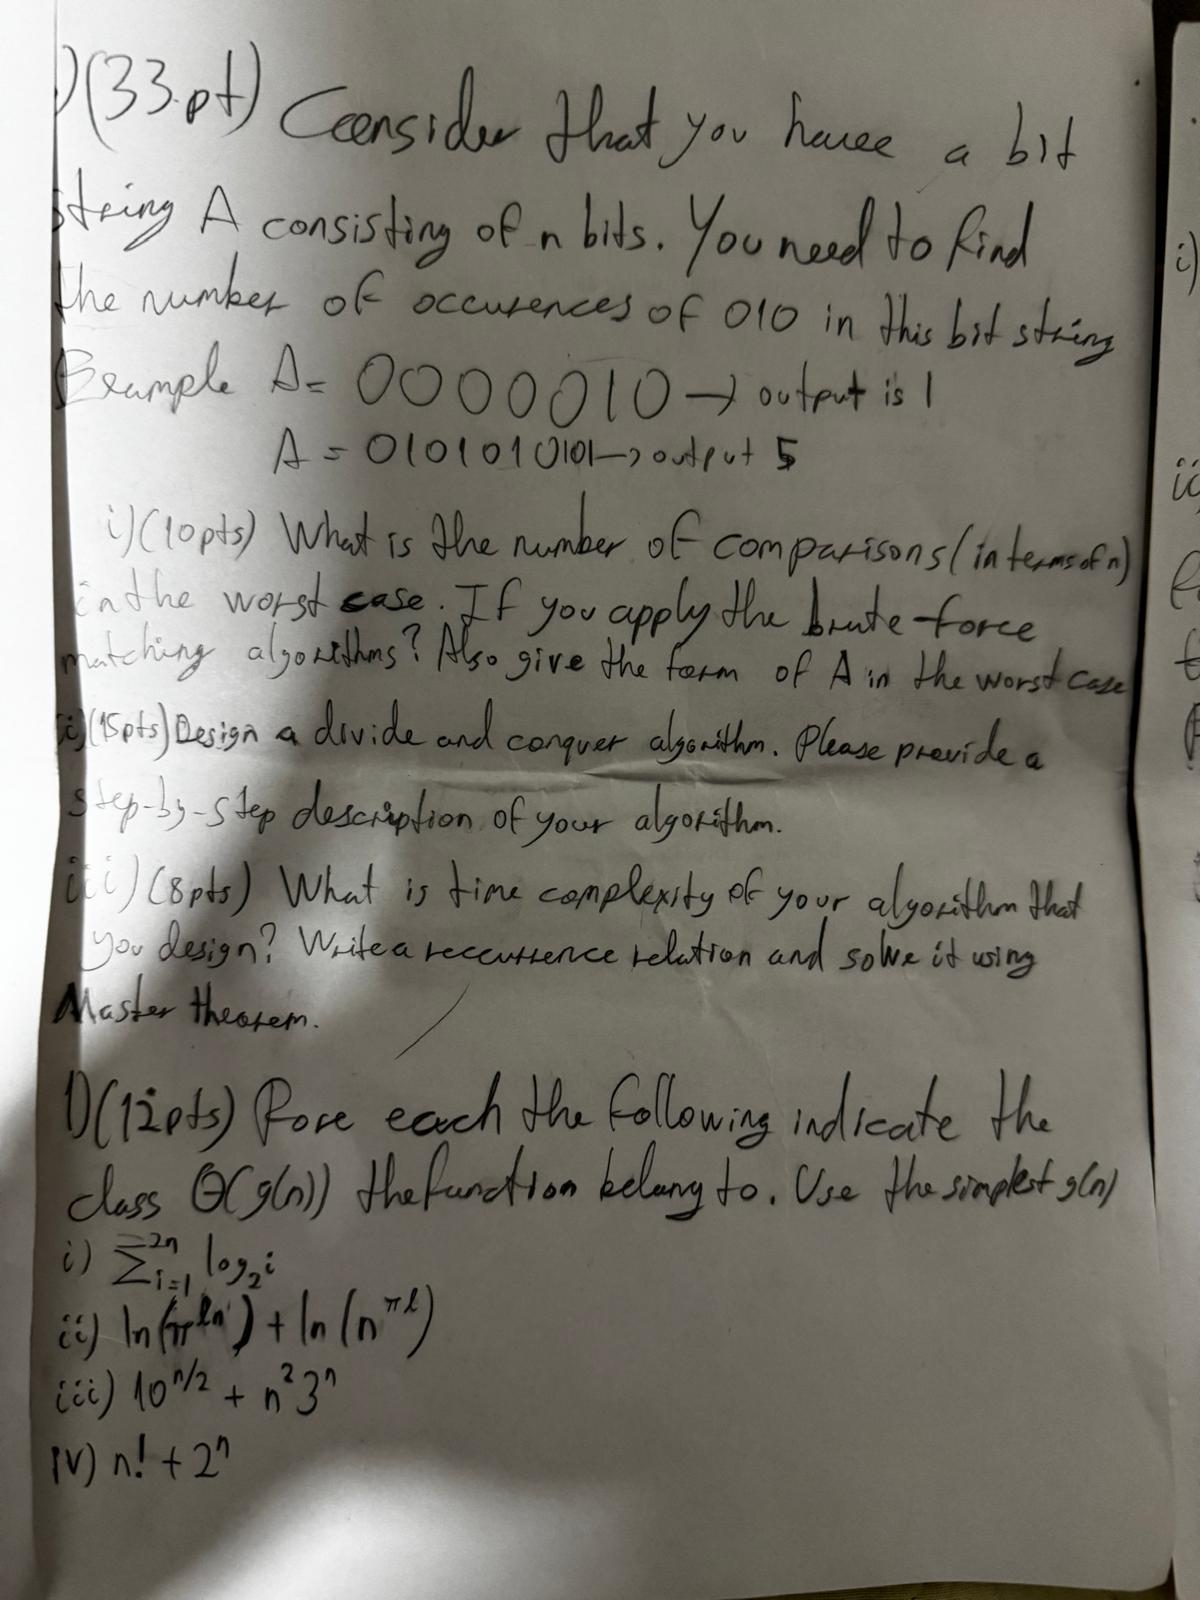 )(33.pt) Consider that you have a bit
string A consisting of n bits. You need to find
the number of occurences of 010 in this bit string
Example A = 0000010 → output is 1
A = 0101010101→ output 5
i)(10pts) What is the number of comparisons (in terms of n)
in the worst case. If you apply the brute-force
matching algorithms? Also give the form of A in the worst case
ii)(15pts) Design a divide and conquer algorithm. Please provide a
step-by-step description of your algorithm.
iii) (8pts) What is time complexity of your algorithm that
you design? Write a reccurrence relation and solve it using
Master theorem.
1)(12pts) Fore each the following indicate the
class Θ(g(n)) the function belong to. Use the simplest g(n)
i) ∑_{i=1}^{2n} log₂i
ii) ln(π^{ln}) + ln(n^{πl})
iii) 10^{n/2} + n²3ⁿ
IV) n! + 2ⁿ
i)